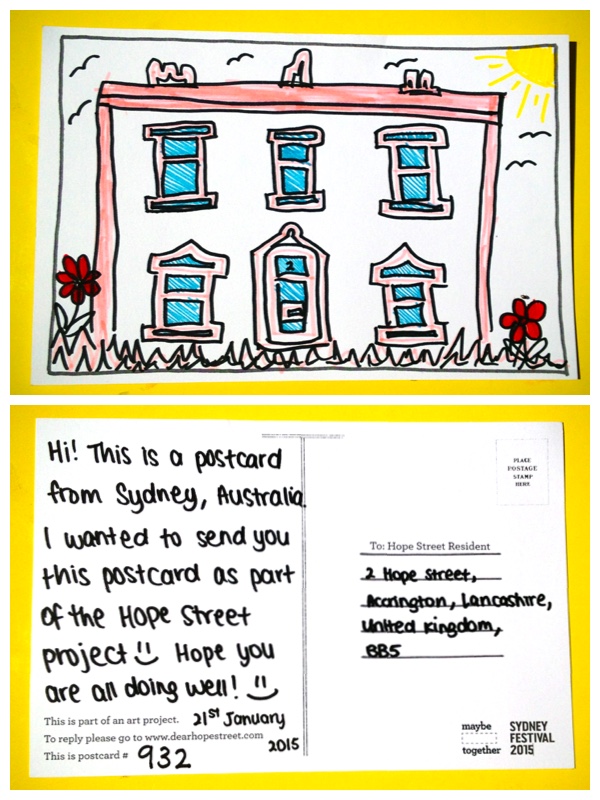 2
Hi! This is a postcard
from Sydney, Australia.
I wanted to send you
this postcard as part
of the Hope Street
project Hope you
are all doing well!
This is part of an art project. 21st January
To reply please go to www.dearhopestreet.com 2015
This is postcard # 932
PLACE
POSTAGE
STAMP
HERE
To: Hope Street Resident
2 Hope Street,
Accrington, Lancashire,
United Kingdom,
BB5
maybe
together
SYDNEY
FESTIVAL
2015